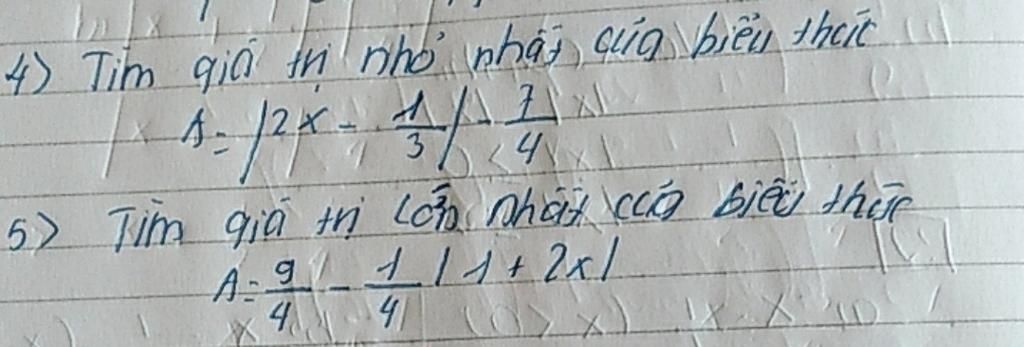 4) Tìm giá trị nhỏ nhất của biểu thức
A = |2x - 1/3| - 7/4
5) Tìm giá trị lớn nhất của biểu thức
A = 9/4 - 1/4 |1 + 2x|